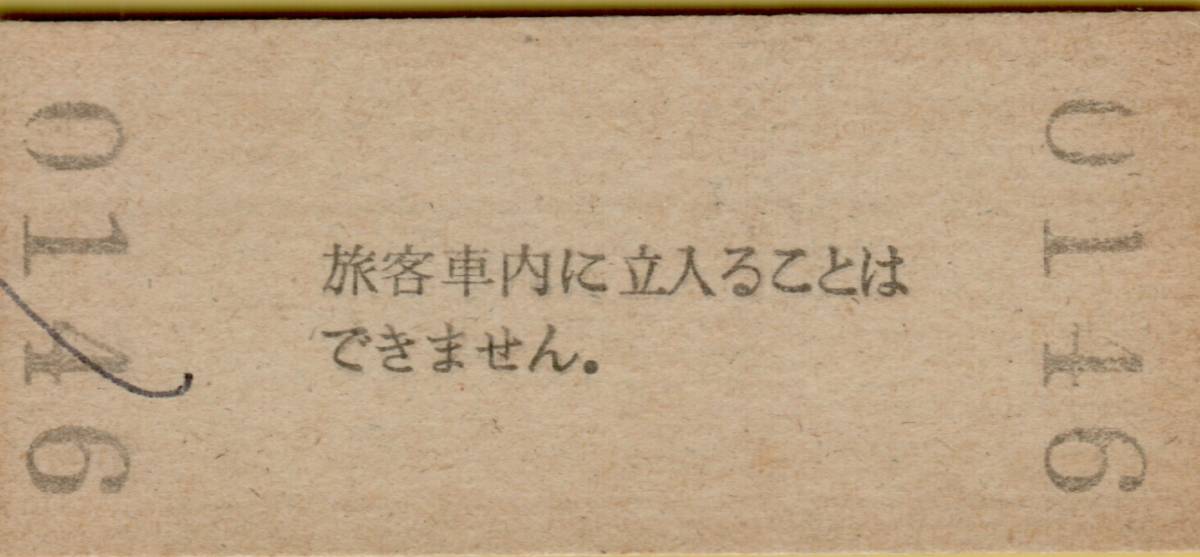 0146
旅客車内に立入ることは
できません。
0146